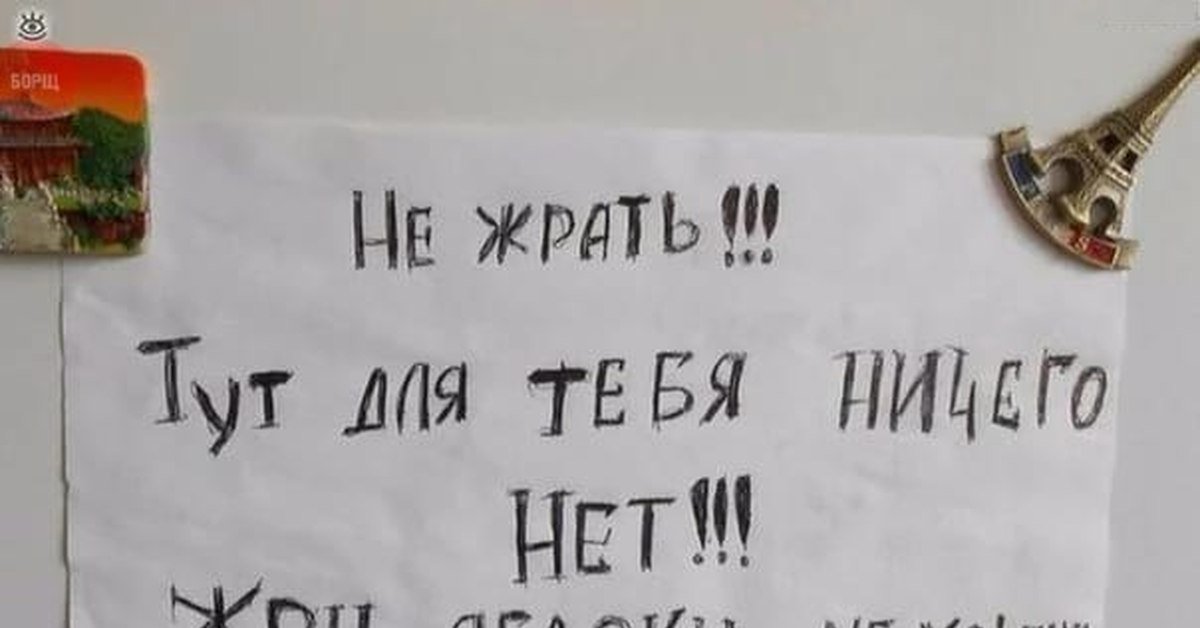 БОРЩ
НЕ ЖРАТЬ!!!
ТУТ ДЛЯ ТЕБЯ НИЧЕГО
НЕТ!!!